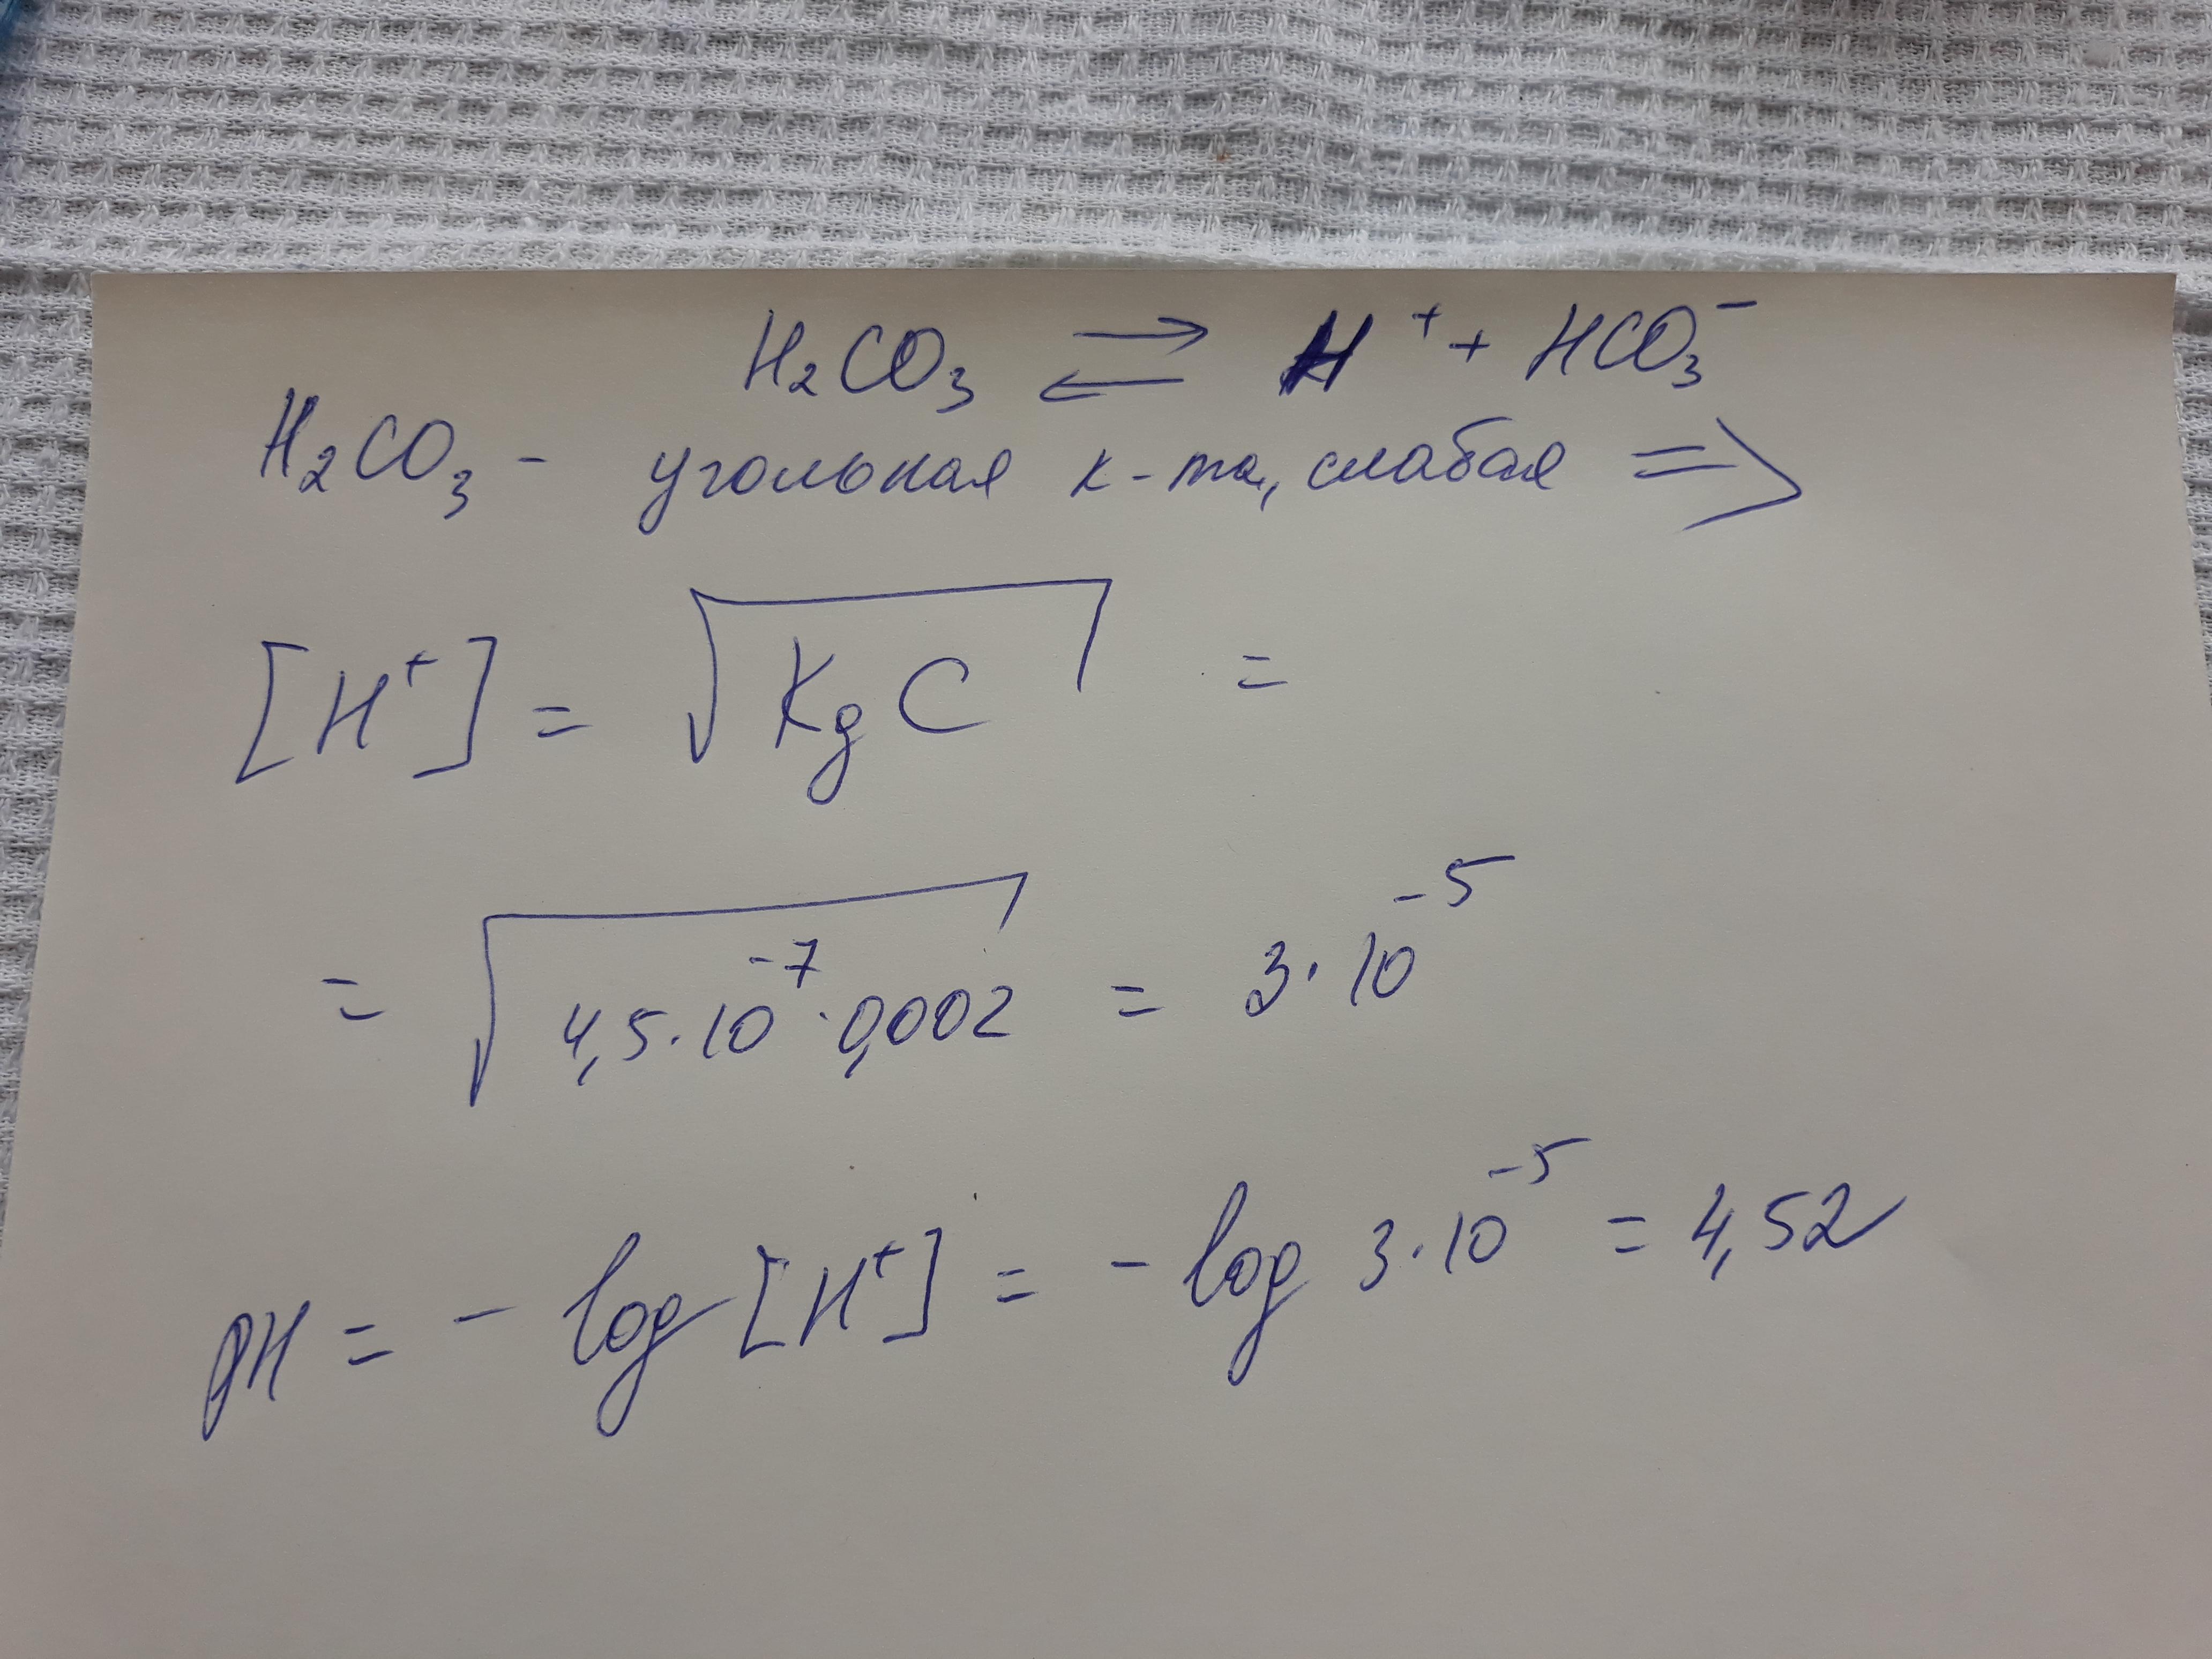 H₂CO₃ ⇄ H⁺ + HCO₃⁻
H₂CO₃ - угольная к-та, слабая ⇒
[H⁺] = √(Kg C) =
= √(4,5·10⁻⁷·0,002) = 3·10⁻⁵
pH = - log [H⁺] = - log 3·10⁻⁵ = 4,52